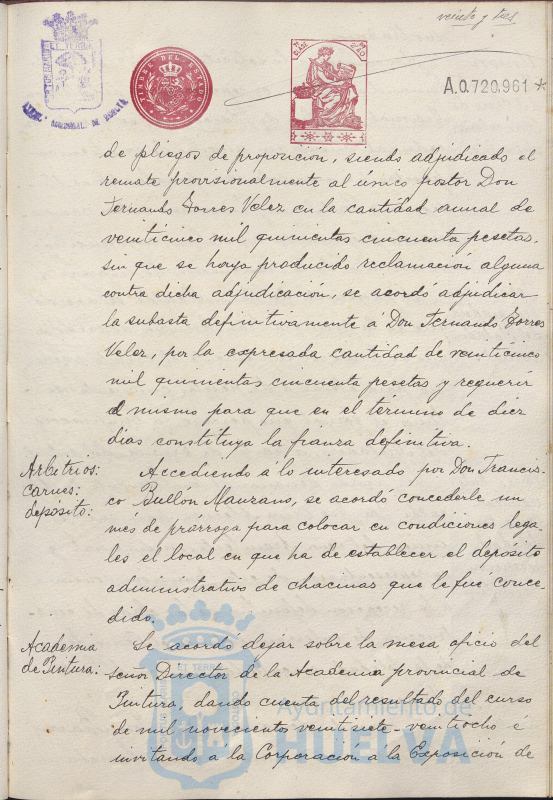 veinte y tres
TIMBRE DEL ESTADO
A.0.720,961 *
de pliegos de proposición, siendo adjudicado el
remate provisionalmente al único postor Don
Fernando Torres Velez en la cantidad anual de
veinticinco mil quinientas cincuenta pesetas,
sin que se haya producido reclamación alguna
contra dicha adjudicación, se acordó adjudicar
la subasta definitivamente á Don Fernando Torres
Velez, por la expresada cantidad de veinticinco
mil quinientas cincuenta pesetas y requerir
al mismo para que en el término de diez
dias constituya la fianza definitiva.
Arbitrios:
carnes:
depósito:
Accediendo á lo interesado por Don Francis-
co Bullón Manzano, se acordó concederle un
mes de prórroga para colocar en condiciones lega-
les el local en que ha de establecer el depósito
administrativo de chacinas que le fué conce-
dido.
Academia
de Pintura:
Se acordó dejar sobre la mesa oficio del
señor Director de la Academia provincial de
Pintura, dando cuenta del resultado del curso
de mil novecientos veintisiete-veintiocho é
invitando á la Corporación á la Exposición de
Ayuntamiento de
HUELVA